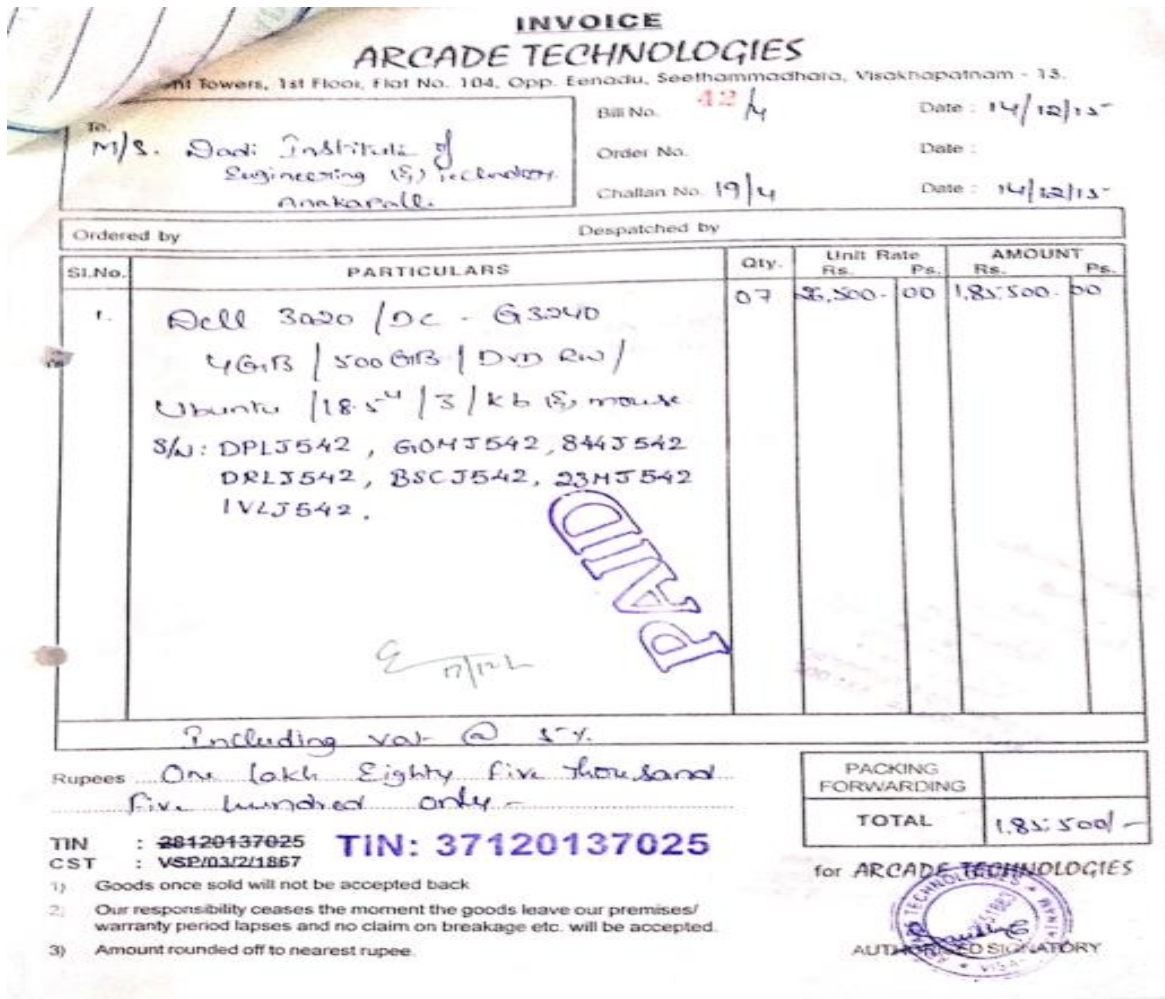 INVOICE
ARCADE TECHNOLOGIES
nt Towers, 1st Floor, Flat No. 104, Opp. Eenadu, Seethammadhara, Visakhapatnam - 13.
To,
M/S. Dadi Institute of
Engineering (&) Technology
Anakapalli
Bill No. 42/4 Date : 14/12/15
Order No. Date :
Challan No. 19/4 Date : 14/12/15
Ordered by Despatched by
Sl.No. PARTICULARS Qty. Unit Rate Rs. Ps. AMOUNT Rs. Ps.
1. Dell 3020 /DC - G3240 07 26,500-00 1,85,500.00
4GB / 500GB / DVD RW /
Ubuntu /18.5" / 3 / kb (&) mouse
S/N: DPLJ542, G0MJ542, 844J542
DRLJ542, BSCJ542, 23MJ542
1VLJ542.
PAID
17/12
Including vat @ 5%.
Rupees One lakh Eighty five thousand
five hundred only -
PACKING
FORWARDING
TOTAL 1,85,500/-
TIN : 28120137025 TIN: 37120137025
CST : VSP/03/2/1867
for ARCADE TECHNOLOGIES
1) Goods once sold will not be accepted back
2) Our responsibility ceases the moment the goods leave our premises/
warranty period lapses and no claim on breakage etc. will be accepted.
3) Amount rounded off to nearest rupee.
AUTHORISED SIGNATORY